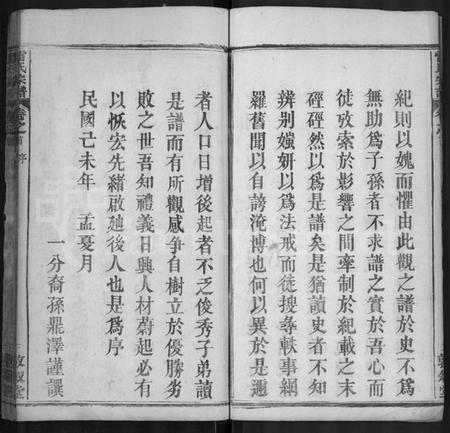 紀則以媿而懼由此觀之譜於史不爲
無助爲子孫者不求譜之實於吾心而
徒攷索於影響之間牽制於紀載之末
硜硜然以爲是譜矣是猶讀史者不知
辨别媸妍以爲法戒而徒搜彞軼事網
羅舊聞以自誇淹博也何以異於是邇
者人口日增後起者不乏俊秀子弟讀
是譜而有所觀感爭自樹立於優勝劣
敗之世吾知禮義日興人材蔚起必有
以恢宏先緒啟廸後人也是爲序
民國己未年 孟夏月
一分裔孫鼎澤謹譔
氏宗譜 卷之首 序
敦叙堂